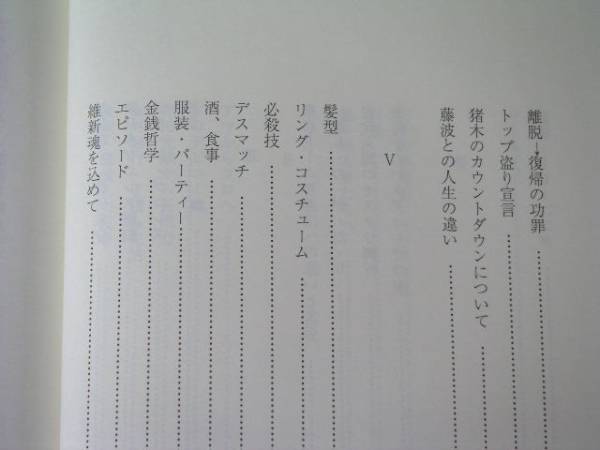 離脱→復帰の功罪
トップ盗り宣言
猪木のカウントダウンについて
藤波との人生の違い
V
髪型
リング・コスチューム
必殺技
デスマッチ
酒、食事
服装・パーティー
金銭哲学
エピソード
維新魂を込めて